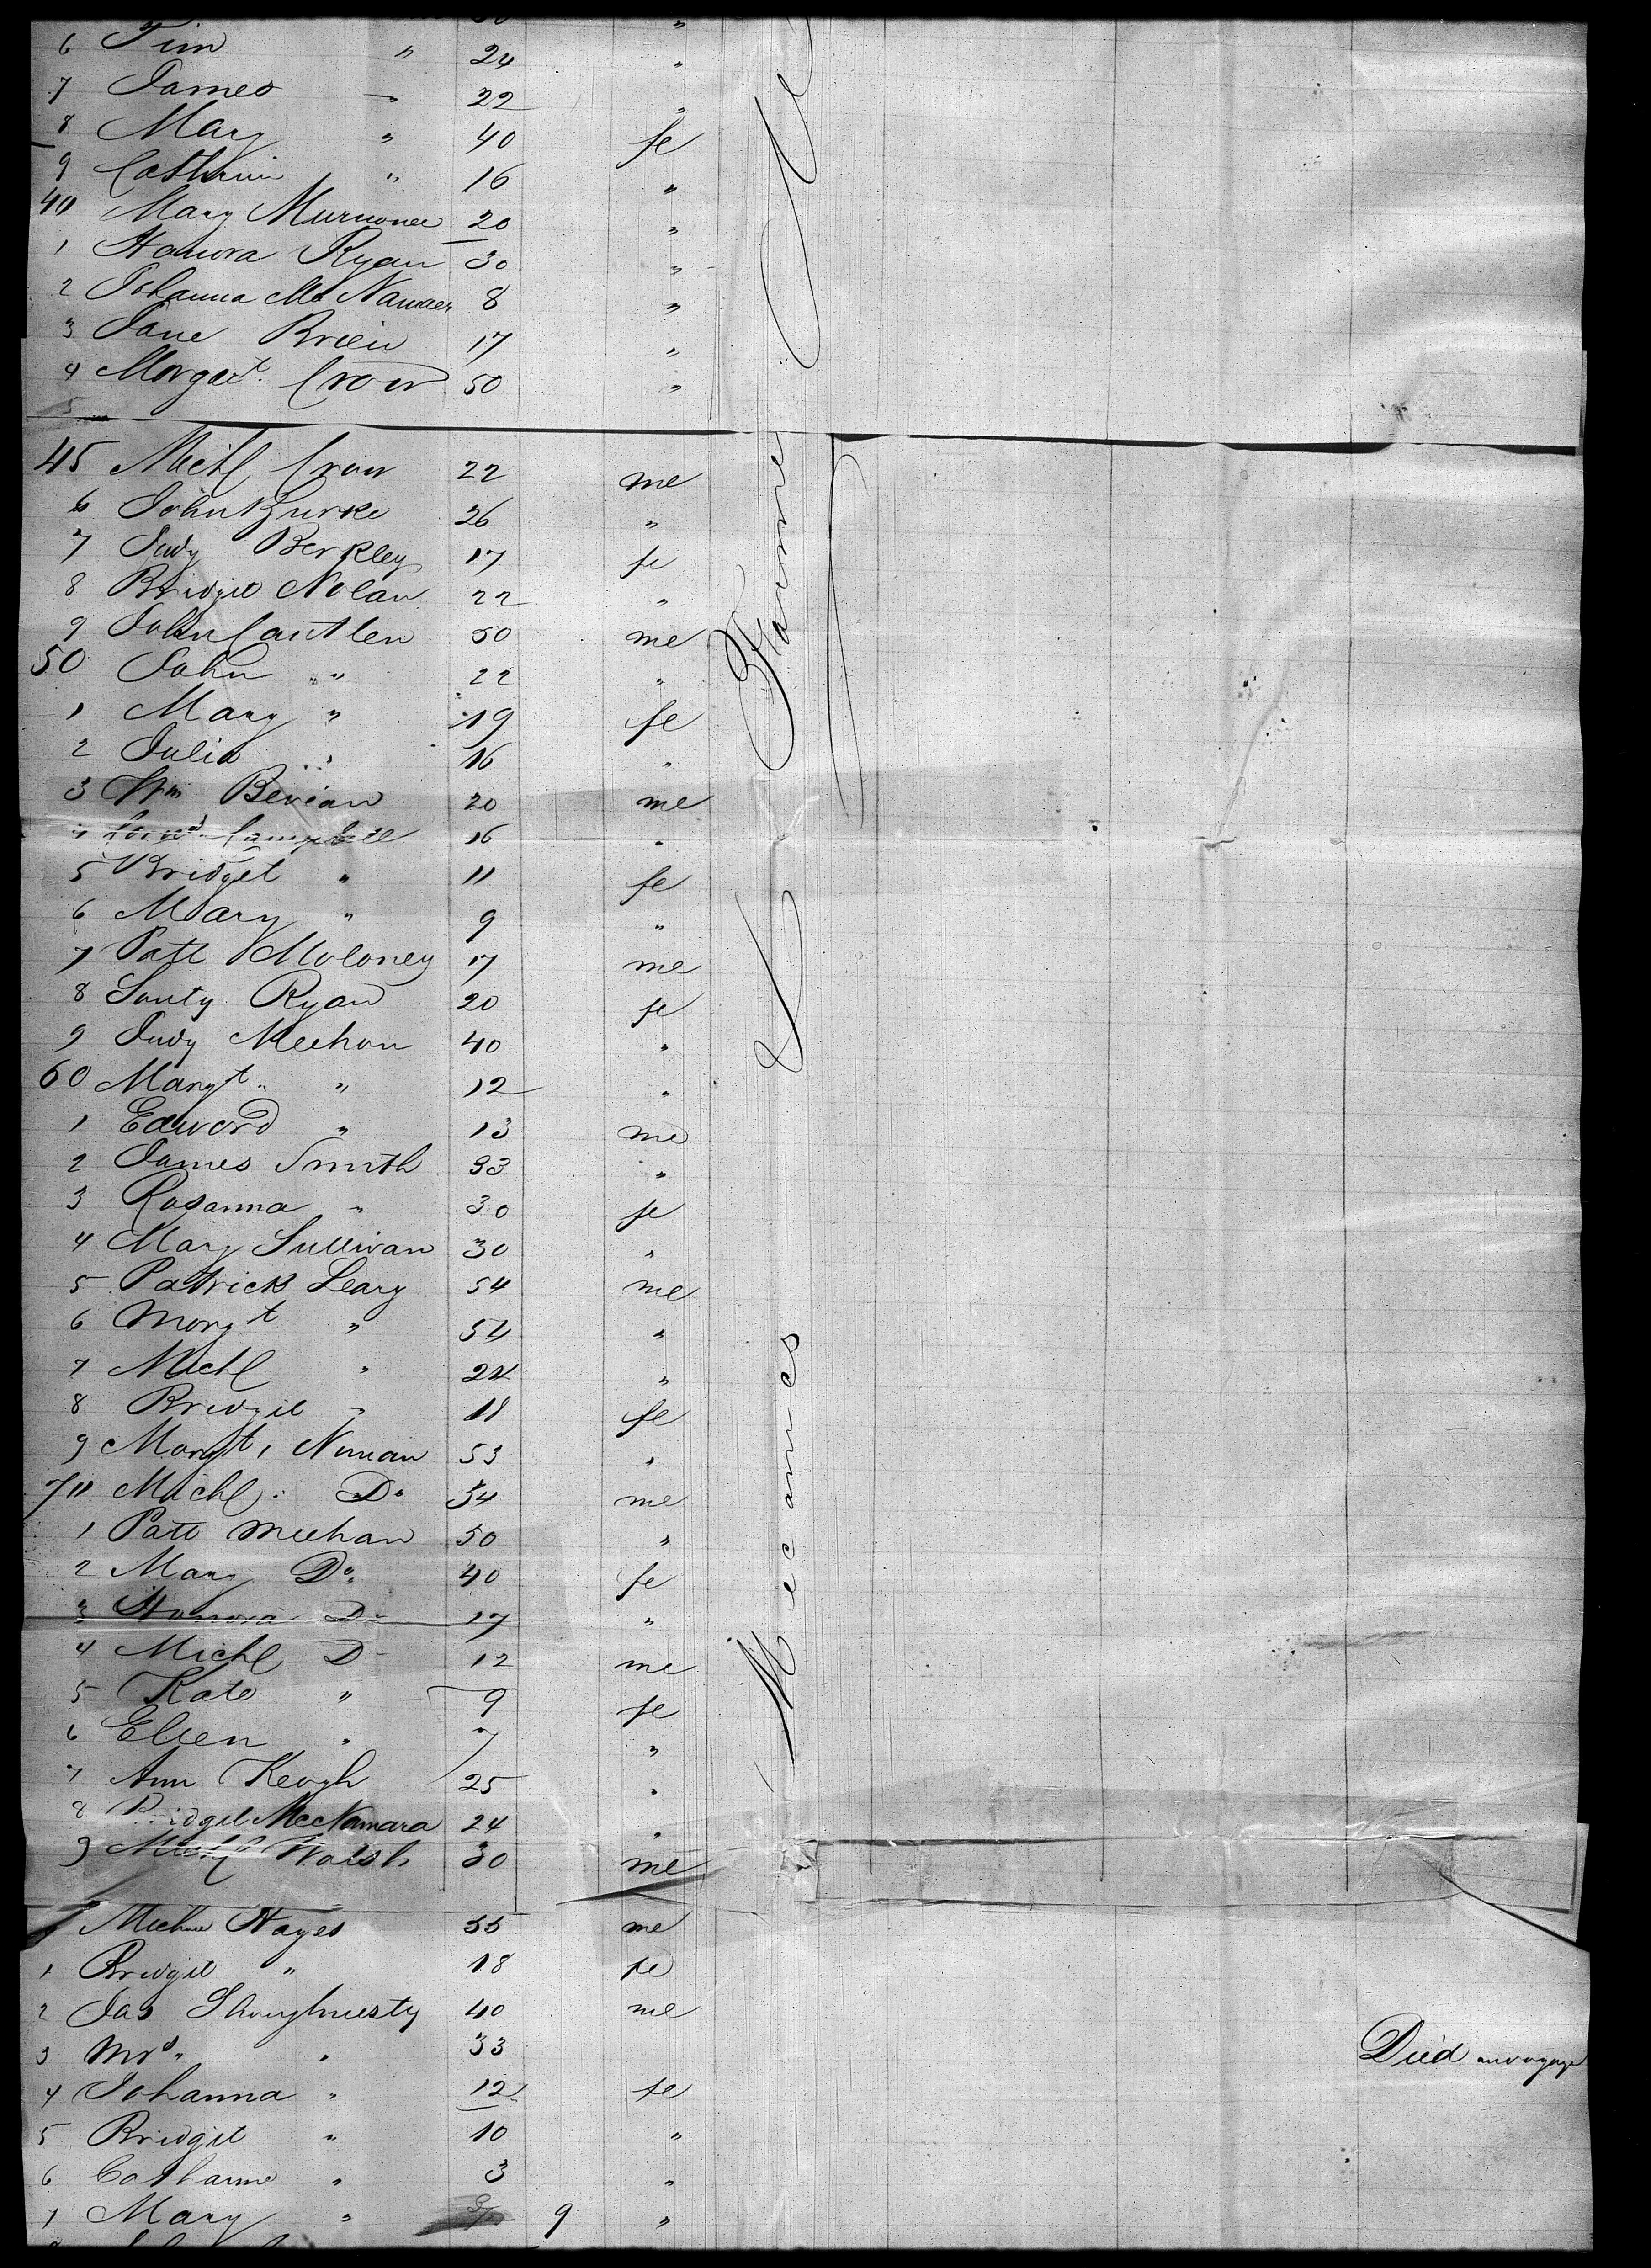 6 Tim " 24 "
7 James " 22 "
8 Mary " 40 fe
9 Cathrin " 16 "
40 Mary 20 "
1 Honora Ryan 30 "
2 Johanna Mc 8 "
3 Jane Brien 17 "
4 Margaet. Crow 50 "
5
45 Michl Crow 22 me
6 John Burke 26 "
7 Judy Berkley 17 fe
8 Bridget Nolan 22 "
9 John Cantlen 50 me
50 John " 22 "
1 Mary " 19 fe
2 Julia " 16 "
3 Wm Bevian 20 me
4 Campbell 16 "
5 Bridget " 11 fe
6 Mary " 9 "
7 Patt Moloney 17 me
8 Ryan 20 fe
9 Judy Meehan 40 "
60 Margt. " 12 "
1 Edward " 13 me
2 James Smith 33 "
3 Rosanna " 30 fe
4 Mary Sullivan 30 "
5 Patrick Leary 54 me
6 Margt " 54 "
7 Michl " 24 "
8 Bridget " 18 fe
9 Margt, Nunan 53 "
70 Michl. Do 54 me
1 Patt Meehan 50 "
2 Mary Do. 40 fe
3 Honora Do 17 "
4 Michl Do 12 me
5 Kate " 9 fe
6 Ellen " 7 "
7 Ann Keogh 25 "
8 Bridget McNamara 24 "
9 Michl Walsh 30 me
Hayes 55 me
1 Bridget " 18 fe
2 Jas Shoughnesty 40 me
3 Mrs. " 33 Died on voyage
4 Johanna " 12 fe
5 Bridget " 10 "
6 Catharine " 3 "
7 Mary " 9 "
Mecanics & Farmers